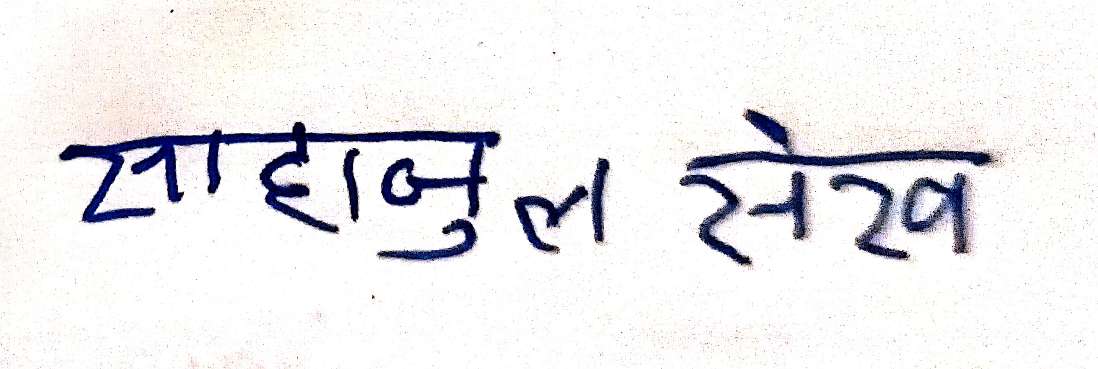 साहाजुल सेख